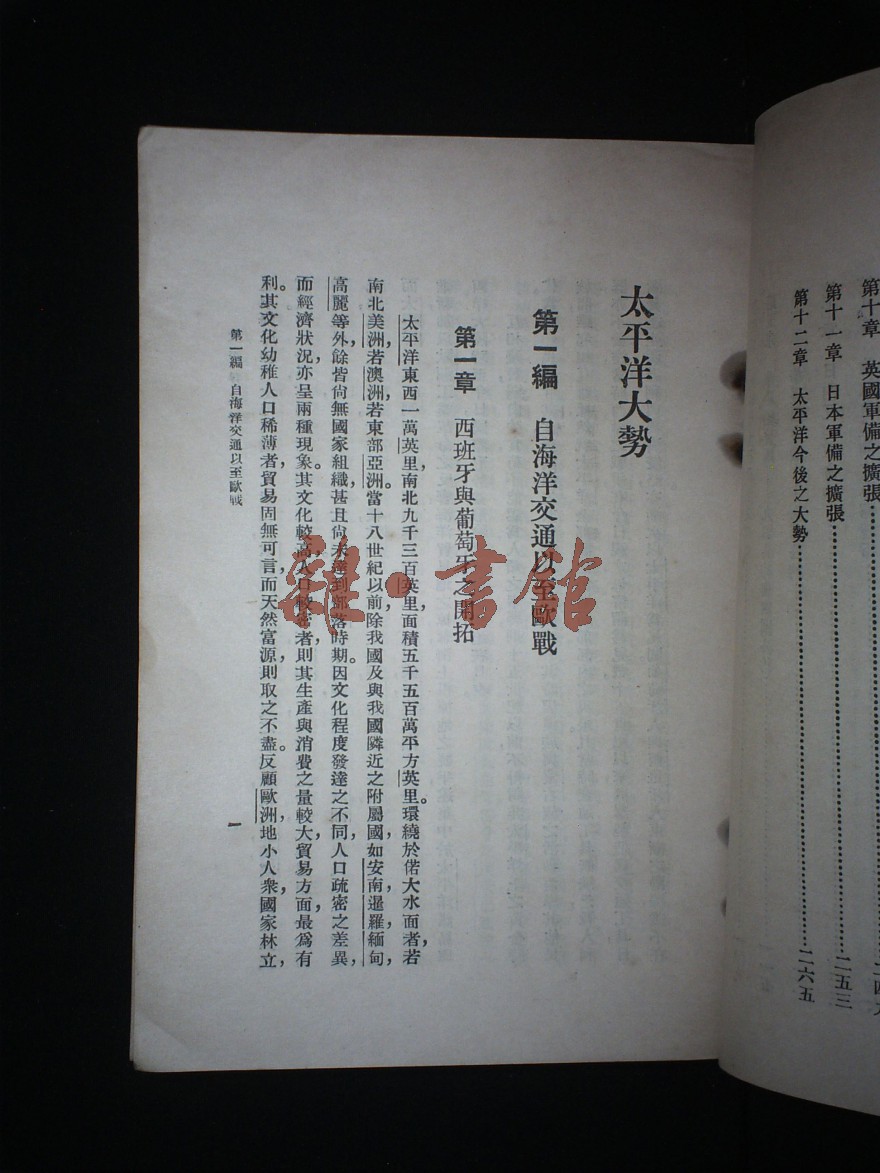 第十章　英國軍備之擴張
第十一章　日本軍備之擴張……二五三
第十二章　太平洋今後之大勢……二六五
太平洋大勢
第一編　自海洋交通以至歐戰
第一章　西班牙與葡萄牙之開拓
太平洋東西一萬英里，南北九千三百英里，面積五千五百萬平方英里。環繞於偌大水面者，若
南北美洲，若澳洲，若東部亞洲。當十八世紀以前，除我國及與我國隣近之附屬國，如安南，暹羅，緬甸，
高麗等外，餘皆尙無國家組織，甚且尙未達到部落時期。因文化程度發達之不同，人口疏密之差異，
而經濟狀況，亦呈兩種現象。其文化較高，人口較密者，則其生產與消費之量較大，貿易方面，最爲有
利。其文化幼稚，人口稀薄者，貿易固無可言，而天然富源，則取之不盡。反顧歐洲，地小人衆，國家林立，
第一編　自海洋交通以至歐戰
一
雜·書館